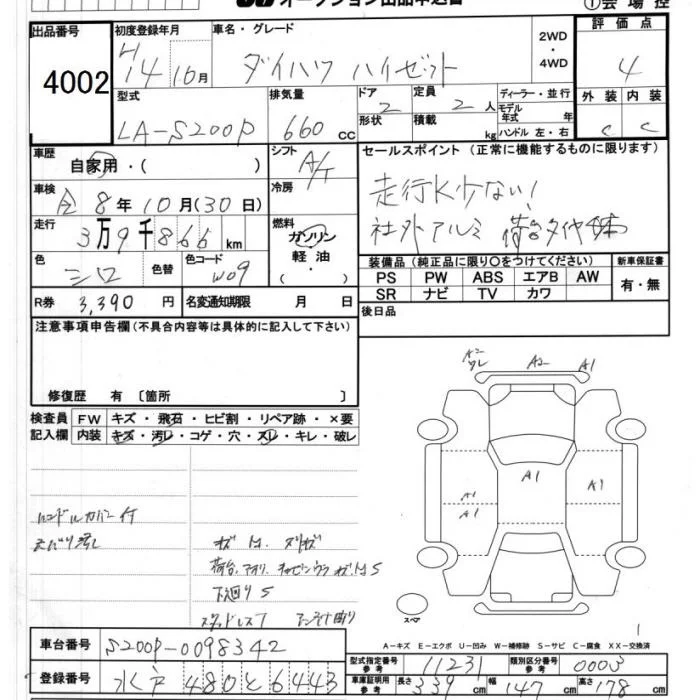 オークション出品申込書
①会場控
出品番号
4002
初度登録年月
H14 10月
車名・グレード
ダイハツ ハイゼット
2WD
・
4WD
評価点
4
型式
LA-S200P
排気量
660cc
ドア
2
形状
定員
2人
積載
kg
ディーラー・並行
モデル年式 年
ハンドル 左・右
外装 内装
C C
車歴
自家用・( )
シフト
A/T
車検
令8年10月(30日)
冷房
走行
3万9千866km
燃料
ガソリン
軽油
( ・ )
色
シロ
色替
色コード
W09
R券
3,390円
名変通知期限 月 日
セールスポイント（正常に機能するものに限ります）
走行K少ない!
社外アルミ 荷台タイヤ4本
装備品（純正品に限り〇をつけてください）
PS PW ABS エアB AW
SR ナビ TV カワ
新車保証書
有・無
後日品
注意事項申告欄(不具合内容等は具体的に記入して下さい)
修復歴 有〔箇所 〕
検査員
記入欄
FW キズ・飛石・ヒビ割・リペア跡・×要
内装 キズ・汚レ・コゲ・穴・スレ・キレ・破レ
ハンドルカバー付
A2 A2 A1
ワレ
A1
A1
A1
A1
キズ
荷台、アオリ
下廻りS
スタッドレス
スペア
A－キズ E－エクボ U－凹み W－補修跡 S－サビ C－腐食 XX－交換済
車台番号
S200P-0098342
登録番号
水戸 480と6443
型式指定番号
参考
11231
類別区分番号
参考
0003
車庫証明用
参考
長さ 339cm 幅 147cm 高さ 178cm